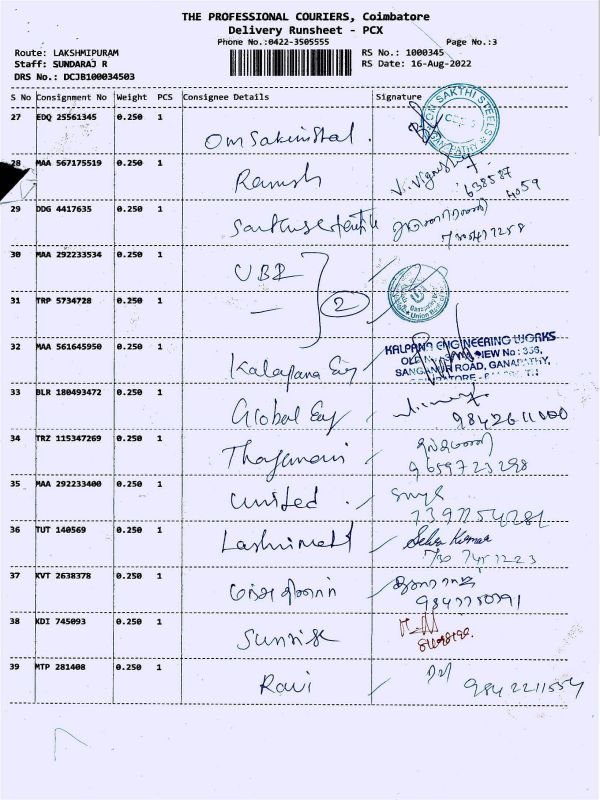 THE PROFESSIONAL COURIERS, Coimbatore
Delivery Runsheet - PCX
Phone No.:0422-3505555 Page No.:3
Route: LAKSHMIPURAM RS No.: 1000345
Staff: SUNDARAJ R RS Date: 16-Aug-2022
DRS No.: DCJB100034503
S No Consignment No Weight PCS Consignee Details Signature
27 EDQ 25561345 0.250 1
OM SAKTHI STEELS GANAPATHY
28 MAA 567175519 0.250 1
Ramesh
638587
4059
29 DDG 4417635 0.250 1
30 MAA 292233534 0.250 1
UBI
31 TRP 5734728 0.250 1
— 2
32 MAA 561645950 0.250 1
Kalapana Eng
KALPANA ENGINEERING WORKS
VIEW No: 336,
SANGANUR ROAD, GANAPATHY,
33 BLR 180493472 0.250 1
Global Eng
9842611000
34 TRZ 115347269 0.250 1
Thayamani
9659723298
35 MAA 292233400 0.250 1
United
36 TUT 140569 0.250 1
Selva Kumar
37 KVT 2638378 0.250 1
38 KDI 745093 0.250 1
Sunrise
39 MTP 281408 0.250 1
Ravi
9842211554